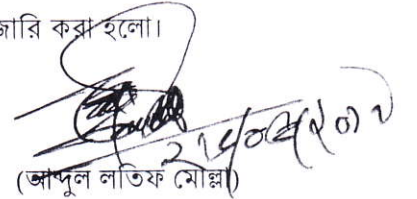 জারি করা হলো।
(আব্দুল লতিফ মোল্লা)